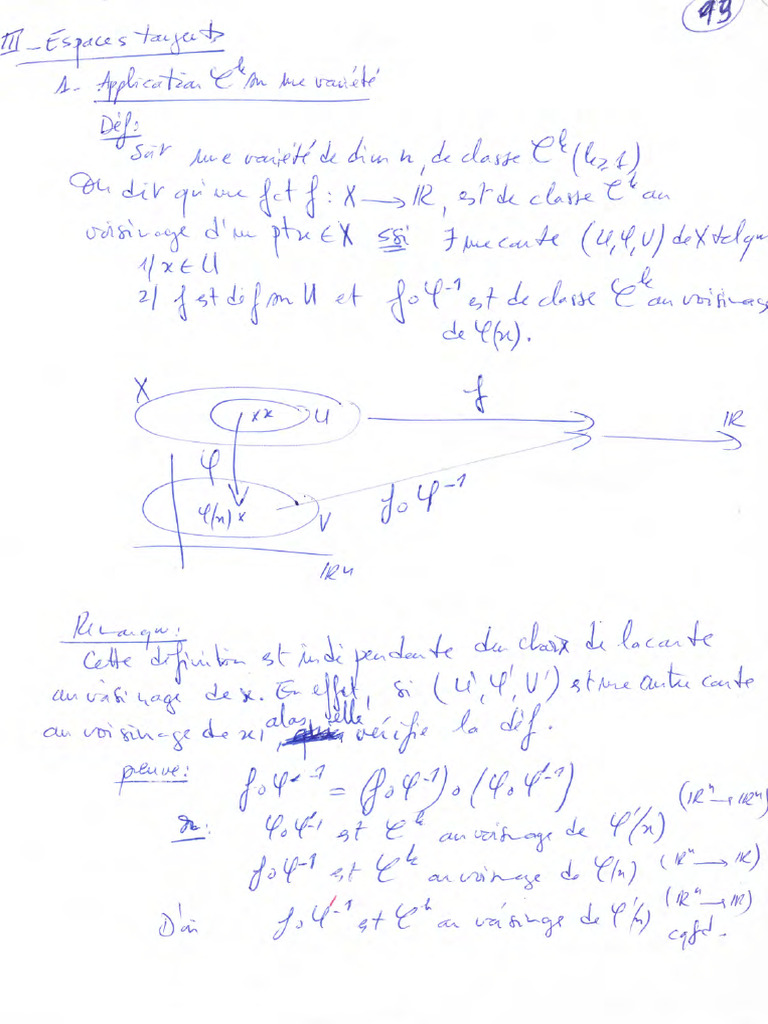 49
III - Espaces tangents
1 - Application C^k sur une variété
Déf:
Soit une variété de dim n, de classe C^k (k≥1)
On dit qu'une fct f : X → IR, est de classe C^k au
voisinage d'un pt x ∈ X ssi ∃ une carte (U, φ, V) de X telq
1/ x ∈ U
2/ f est déf sur U et f∘φ^-1 est de classe C^k au voisinage
de φ(x).
X
x x
U
f
IR
φ
φ(x) x
V
f∘φ^-1
IR^n
Remarque:
Cette définition est indépendante du choix de la carte
au voisinage de x. En effet, si (U', φ', V') est une autre carte
au voisinage de x, alors, elle vérifie la déf.
preuve: f∘φ'^-1 = (f∘φ^-1)∘(φ∘φ'^-1)
(IR^n → IR^n)
φ∘φ'^-1 est C^k au voisinage de φ'(x)
f∘φ^-1 est C^k au voisinage de φ(x) (IR^n → IR)
D'où f∘φ'^-1 est C^k au voisinage de φ'(x) (IR^n → IR)
cqfd.